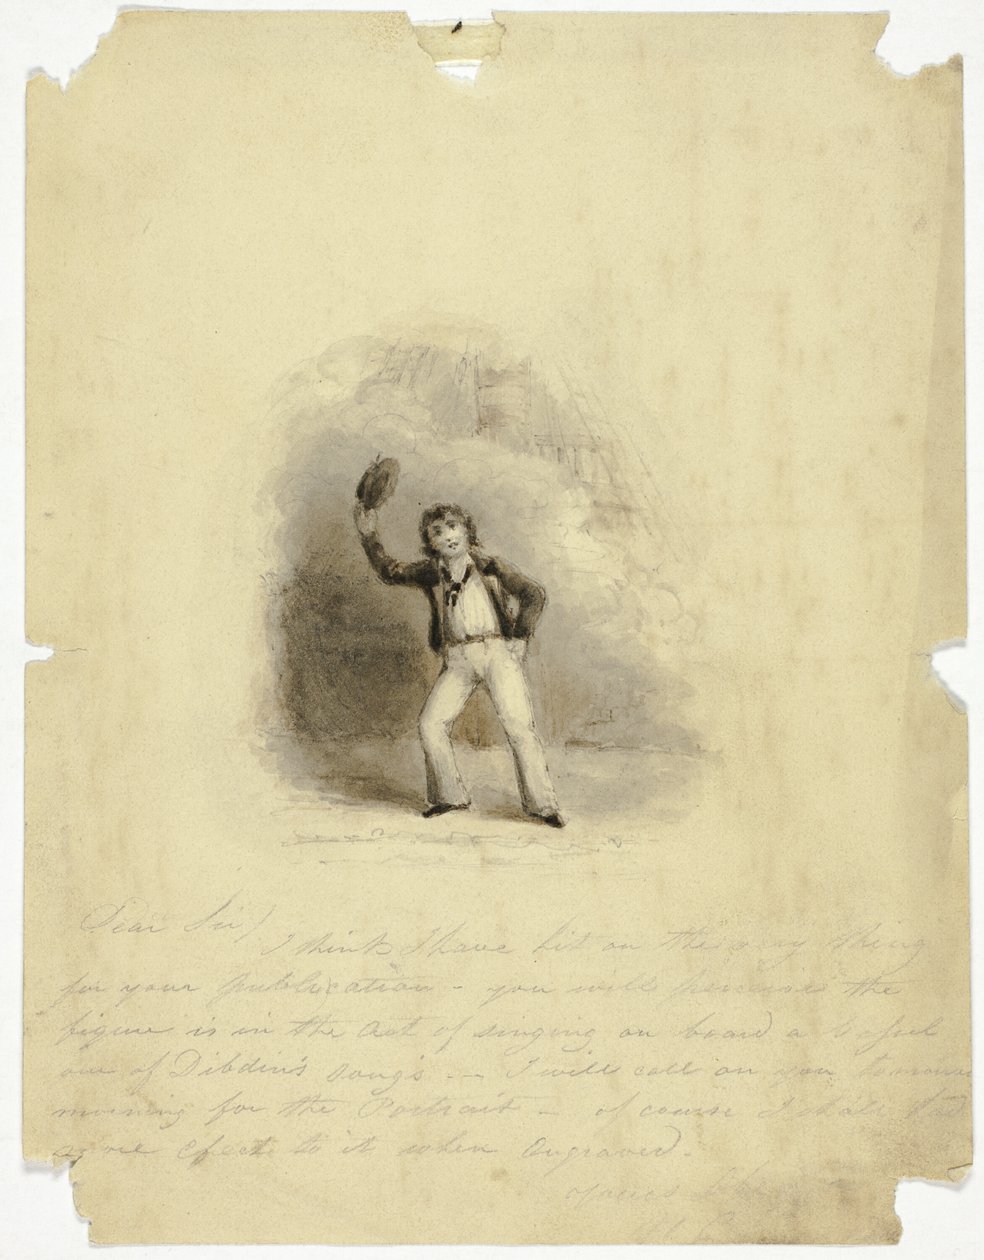 Dear Sir/
I think I have hit on the very thing
for your publication - you will perceive the
figure is in the Act of singing on board a Vessel
one of Dibdin's songs -- I will call on you tomorrow
morning for the Portrait - of course I shall add
more efect to it when engraved.
yours